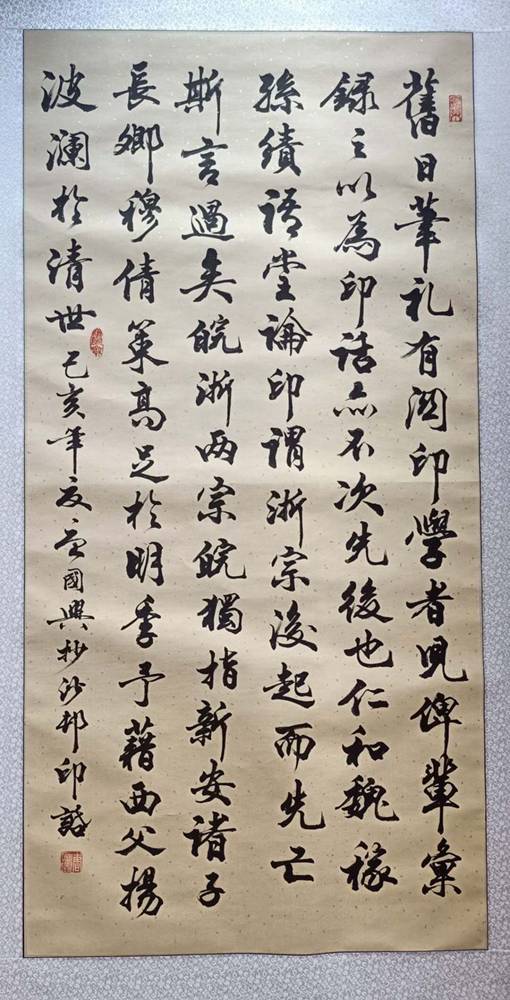 舊日筆札有関印學者児俾輩彙
録之以為印話亦不次先後也仁和魏稼
孫績語堂論印謂浙宗後起而先亡
斯言過矣皖浙两宗皖獨指新安諸子
長卿穆倩策高足於明季予藉西父揚
波瀾於清世 己亥年夏唐國興抄沙邨印話